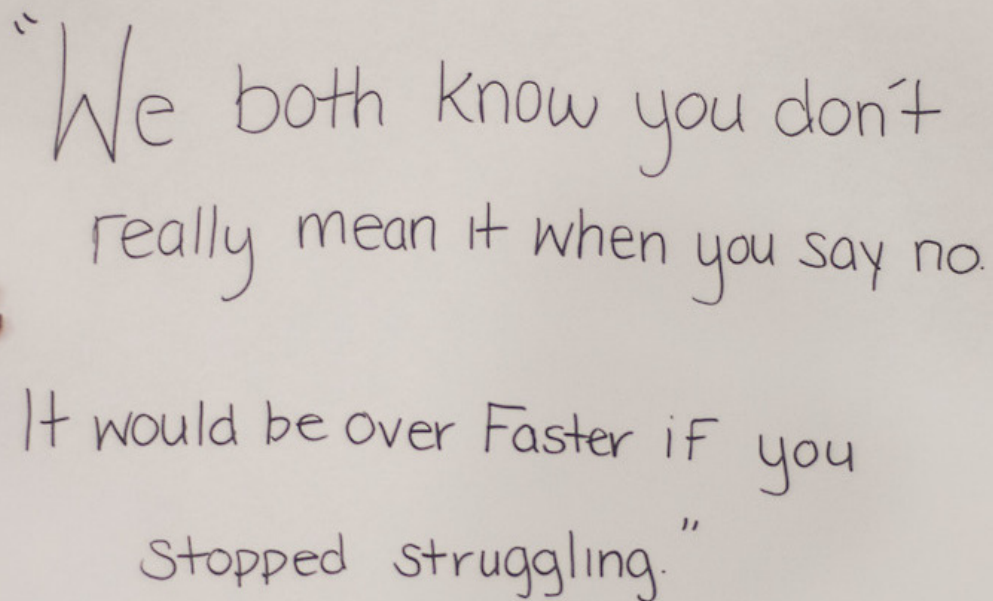 "We both know you don't
really mean it when you say no.
It would be over Faster if you
stopped struggling."